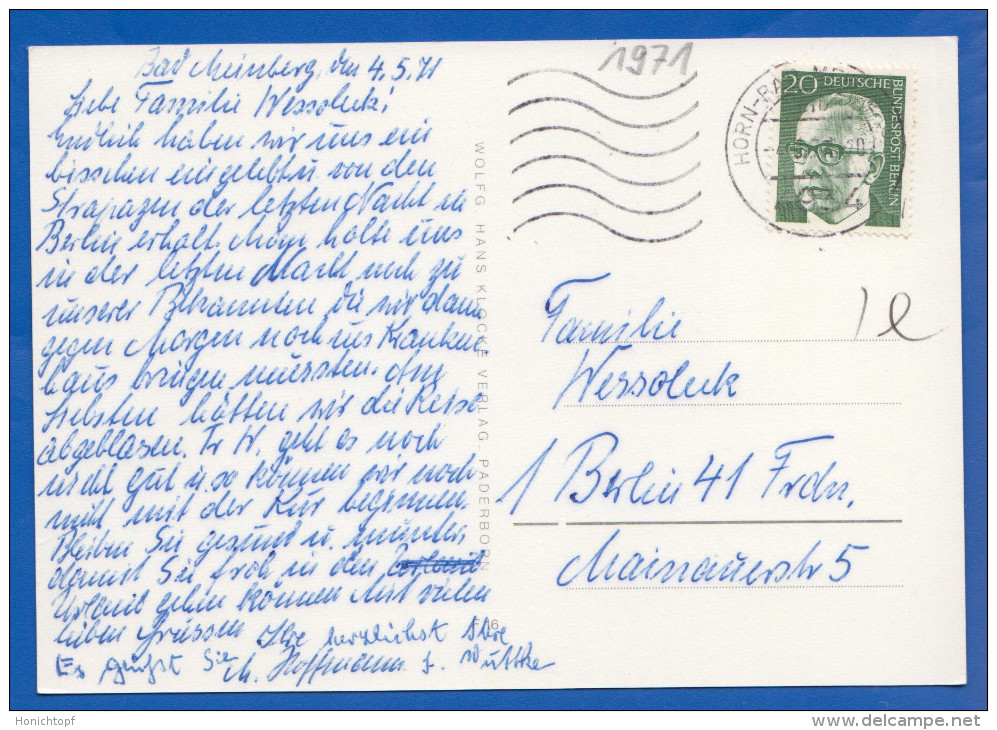 Bad Meinberg, den 4.5.71
Liebe Familie Wessoleck!
Endlich haben wir uns ein
bisschen eingelebt u. von den
Strapazen der letzten Nacht in
Berlin erholt. Man holte uns
in der letzten Nacht noch zu
unserer Bekannten die wir dann
gegen Morgen noch ins Kranken
haus bringen mussten. Am
liebsten hätten wir die Reise
abgeblasen. Fr W. geht es noch
nicht gut u. so können wir noch
nicht mit der Kur beginnen.
Bleiben Sie gesund u. munter,
damit Sie froh in den
Urlaub gehen können. Mit vielen
lieben Grüssen Ihre
Es grüßt Sie herzlichst Ihre
M. Hoffmann F. Wuttke
WOLFG. HANS KLOCKE VERLAG, PADERBORN
F 16
1971
HORN-BAD
20 DEUTSCHE
BUNDESPOST BERLIN
Familie
Wessoleck
1 Berlin 41 Frdn.
Mainauerstr 5
Honichtopf
www.delcampe.net